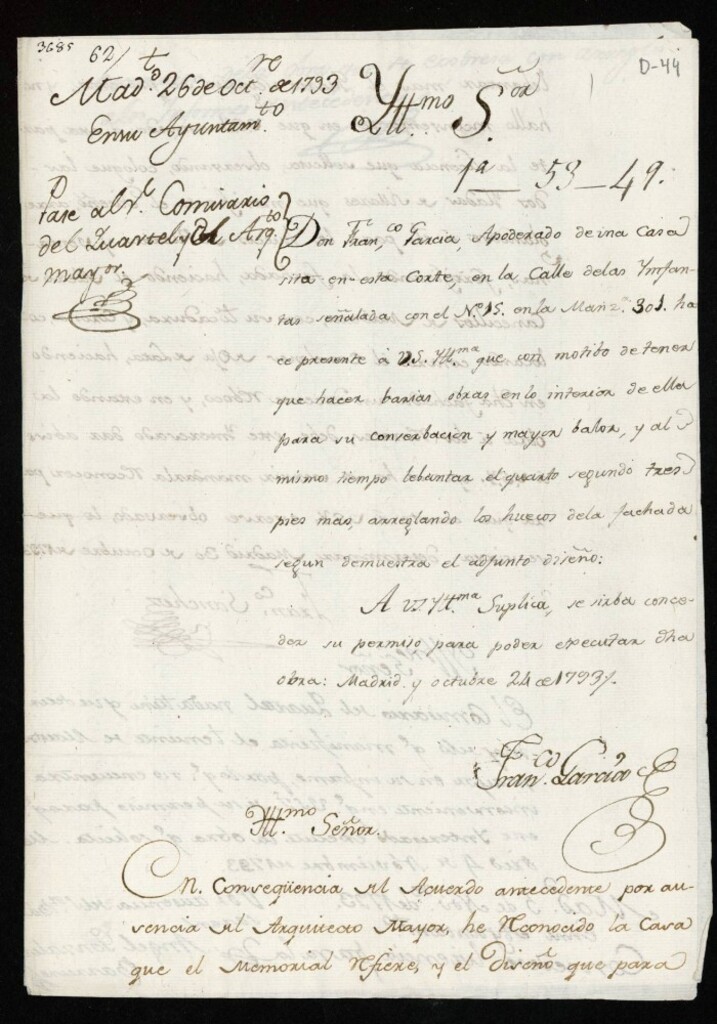 3685
62/
D-44
Mad.d 26 de Oct.re de 1793
En su Ayuntam.to
Pase al S.r Comisario
del Quartel y al Arq.to
mayor.
Ytt.mo S.or
1a 53-49.
Don Fran.co Garcia, Apoderado de una Casa
sita en esta Corte, en la Calle delas Ymfan
tas señalada con el Nº 15. en la Manz.a 301. ha
ce presente á V.S. Ytt.ma que con motibo de tener
que hacer barias obras en lo interior de ella
para su conserbación y mayor balor, y al
mismo tiempo lebantar el quarto segundo tres
pies mas, arreglando los huecos dela fachada
segun demuestra el adjunto diseño:
A VS Ytt.ma Suplica, se sirba conce-
der su permiso para poder executar dha
obra: Madrid y octubre 24 de 1793
Fran.co Garcia
Ytt.mo Señor.
En. Conseqüencia del Acuerdo antecedente por au-
sencia del Arquitecto Mayor, he Reconocido la Casa
que el Memorial Refiere, y el Diseño que para